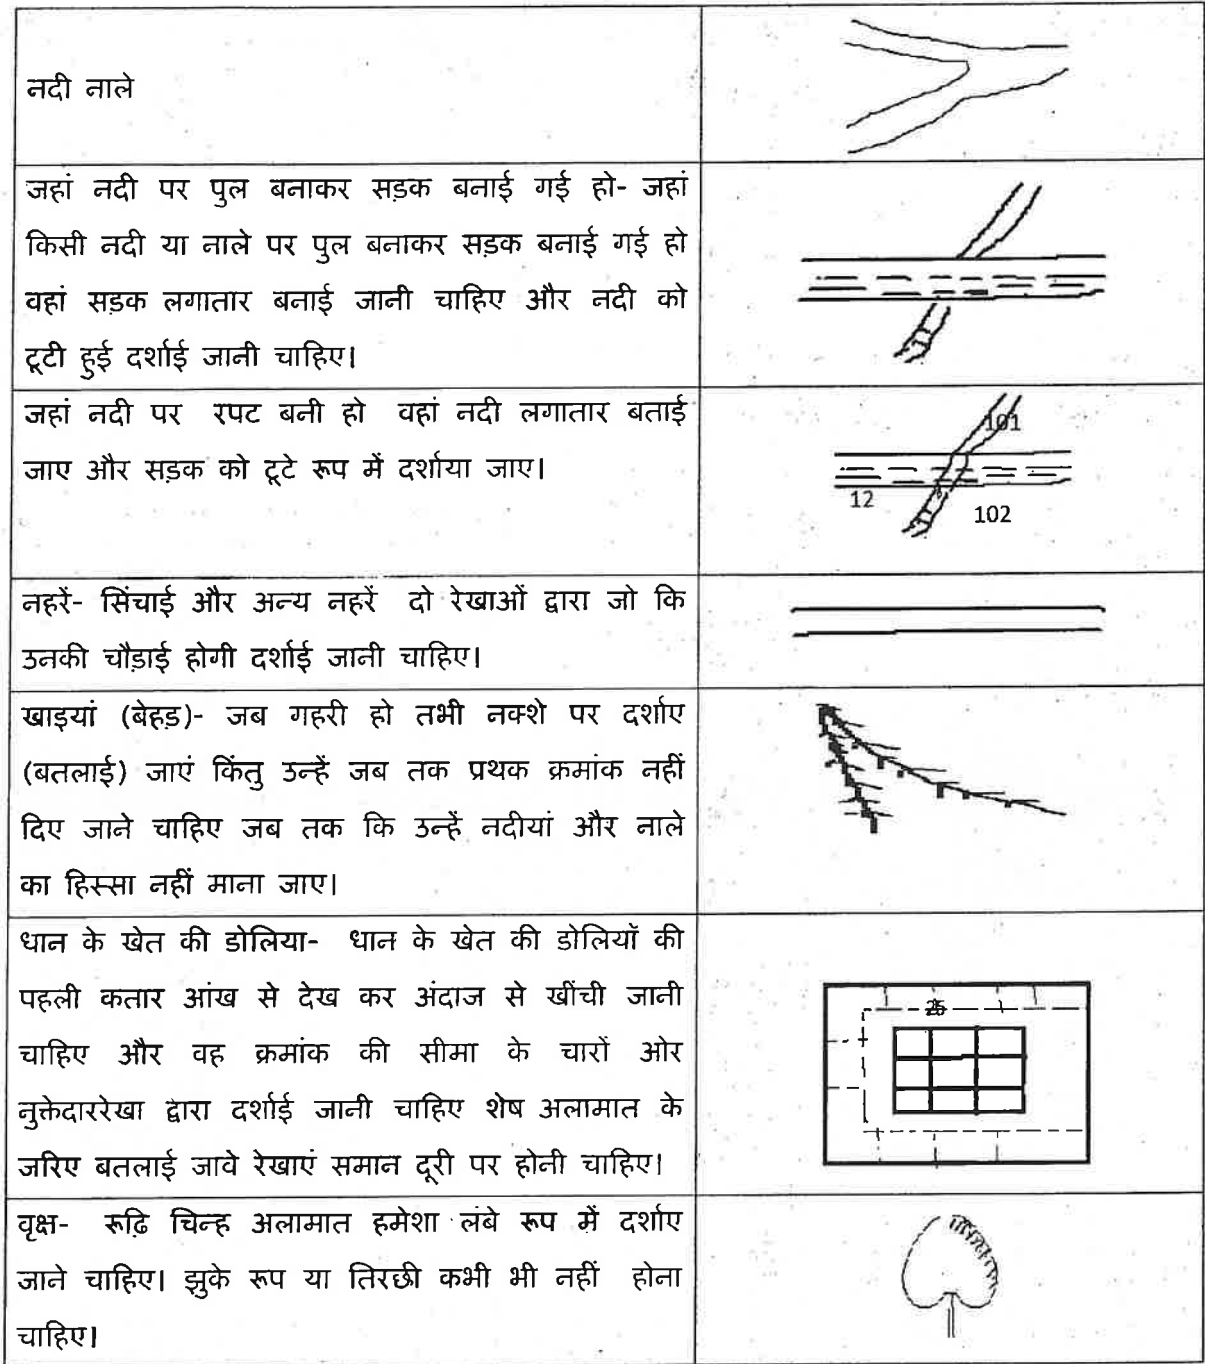 नदी नाले
जहां नदी पर पुल बनाकर सड़क बनाई गई हो- जहां
किसी नदी या नाले पर पुल बनाकर सड़क बनाई गई हो
वहां सड़क लगातार बनाई जानी चाहिए और नदी को
टूटी हुई दर्शाई जानी चाहिए।
जहां नदी पर रपट बनी हो वहां नदी लगातार बताई
जाए और सड़क को टूटे रूप में दर्शाया जाए।
101
12
102
नहरें- सिंचाई और अन्य नहरें दो रेखाओं द्वारा जो कि
उनकी चौड़ाई होगी दर्शाई जानी चाहिए।
खाइयां (बेहड़)- जब गहरी हो तभी नक्शे पर दर्शाए
(बतलाई) जाएं किंतु उन्हें जब तक प्रथक क्रमांक नहीं
दिए जाने चाहिए जब तक कि उन्हें नदीयां और नाले
का हिस्सा नहीं माना जाए।
धान के खेत की डोलिया- धान के खेत की डोलियॉ की
पहली कतार आंख से देख कर अंदाज से खींची जानी
चाहिए और वह क्रमांक की सीमा के चारों ओर
नुक्तेदाररेखा द्वारा दर्शाई जानी चाहिए शेष अलामात के
जरिए बतलाई जावे रेखाएं समान दूरी पर होनी चाहिए।
वृक्ष- रूढ़ि चिन्ह अलामात हमेशा लंबे रूप में दर्शाए
जाने चाहिए। झुके रूप या तिरछी कभी भी नहीं होना
चाहिए।